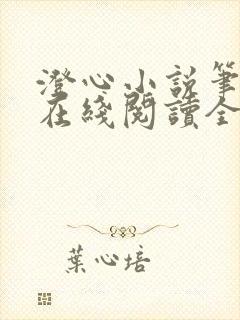 澄心小説筆
在綫閱讀全
葉心培